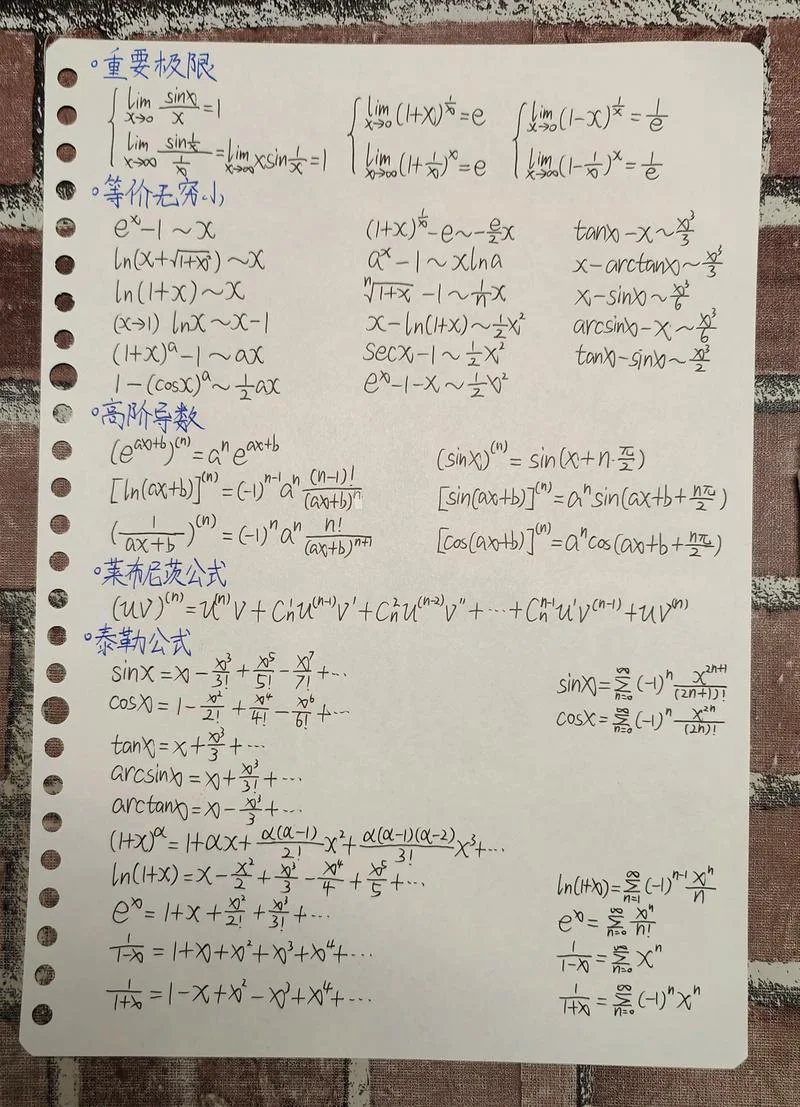 重要极限
lim x→0 sinx/x = 1    lim x→0 (1+x)^(1/x) = e    lim x→0 (1-x)^(1/x) = 1/e
lim x→∞ sin(1/x)/(1/x) = lim x→∞ xsin(1/x) = 1    lim x→∞ (1+1/x)^x = e    lim x→∞ (1-1/x)^x = 1/e
等价无穷小
e^x-1~x    (1+x)^(1/x)-e~-(e/2)x    tanx-x~x³/3
ln(x+√(1+x²))~x    a^x-1~xlna    x-arctanx~x³/3
ln(1+x)~x    ⁿ√(1+x)-1~(1/n)x    x-sinx~x³/6
(x→1) lnx~x-1    x-ln(1+x)~(1/2)x²    arcsinx-x~x³/6
(1+x)^a-1~ax    secx-1~(1/2)x²    tanx-sinx~x³/2
1-(cosx)^a~(1/2)ax    e^x-1-x~(1/2)x²
高阶导数
(e^(ax+b))^(n)=a^n e^(ax+b)    (sinx)^(n)=sin(x+n·π/2)
[ln(ax+b)]^(n)=(-1)^(n-1) a^n (n-1)!/(ax+b)^n    [sin(ax+b)]^(n)=a^n sin(ax+b+nπ/2)
(1/(ax+b))^(n)=(-1)^n a^n n!/(ax+b)^(n+1)    [cos(ax+b)]^(n)=a^n cos(ax+b+nπ/2)
莱布尼茨公式
(uv)^(n)=u^(n)v+C_n^1 u^(n-1)v'+C_n^2 u^(n-2)v''+…+C_n^(n-1) u'v^(n-1)+uv^(n)
泰勒公式
sinx=x-x³/3!+x⁵/5!-x⁷/7!+…    sinx=∑_(n=0)^∞ (-1)^n x^(2n+1)/(2n+1)!
cosx=1-x²/2!+x⁴/4!-x⁶/6!+…    cosx=∑_(n=0)^∞ (-1)^n x^(2n)/(2n)!
tanx=x+x³/3+…
arcsinx=x+x³/3!+…
arctanx=x-x³/3+…
(1+x)^α=1+αx+α(α-1)/2! x²+α(α-1)(α-2)/3! x³+…
ln(1+x)=x-x²/2+x³/3-x⁴/4+x⁵/5+…    ln(1+x)=∑_(n=1)^∞ (-1)^(n-1) x^n/n
e^x=1+x+x²/2!+x³/3!+…    e^x=∑_(n=0)^∞ x^n/n!
1/(1-x)=1+x+x²+x³+x⁴+…    1/(1-x)=∑_(n=0)^∞ x^n
1/(1+x)=1-x+x²-x³+x⁴+…    1/(1+x)=∑_(n=0)^∞ (-1)^n x^n